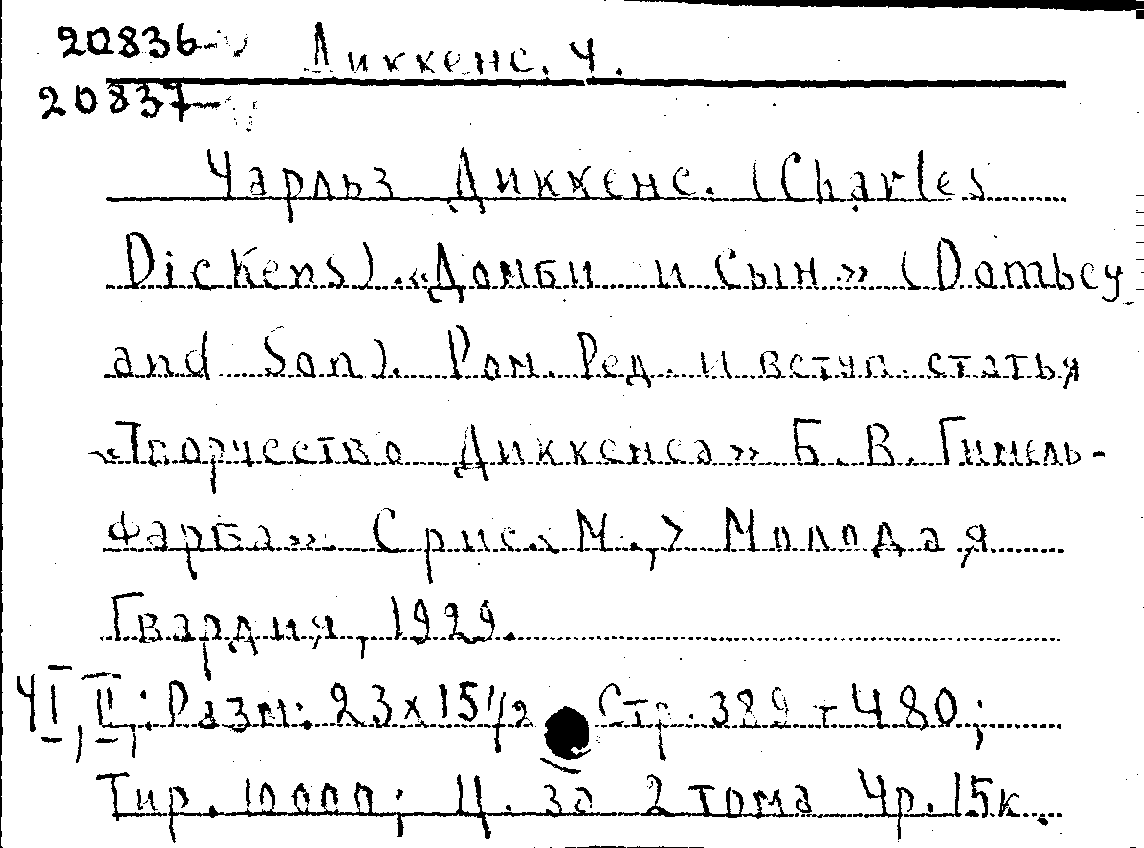 20836 Диккенс. Ч.
20837
Чарльз Диккенс. (Charles
Dickens). «Домби и Сын» (Dombey
and Son). Ром. Ред. и вступ. статья
«Творчество Диккенса» Б. В. Гимель-
фарба». С рис. <М.,> Молодая
Гвардия, 1929.
Ч I, II,; Разм: 23x15 1/2 Стр. 389 + 480;
Тир. 10000; Ц. за 2 тома 4р. 15к.